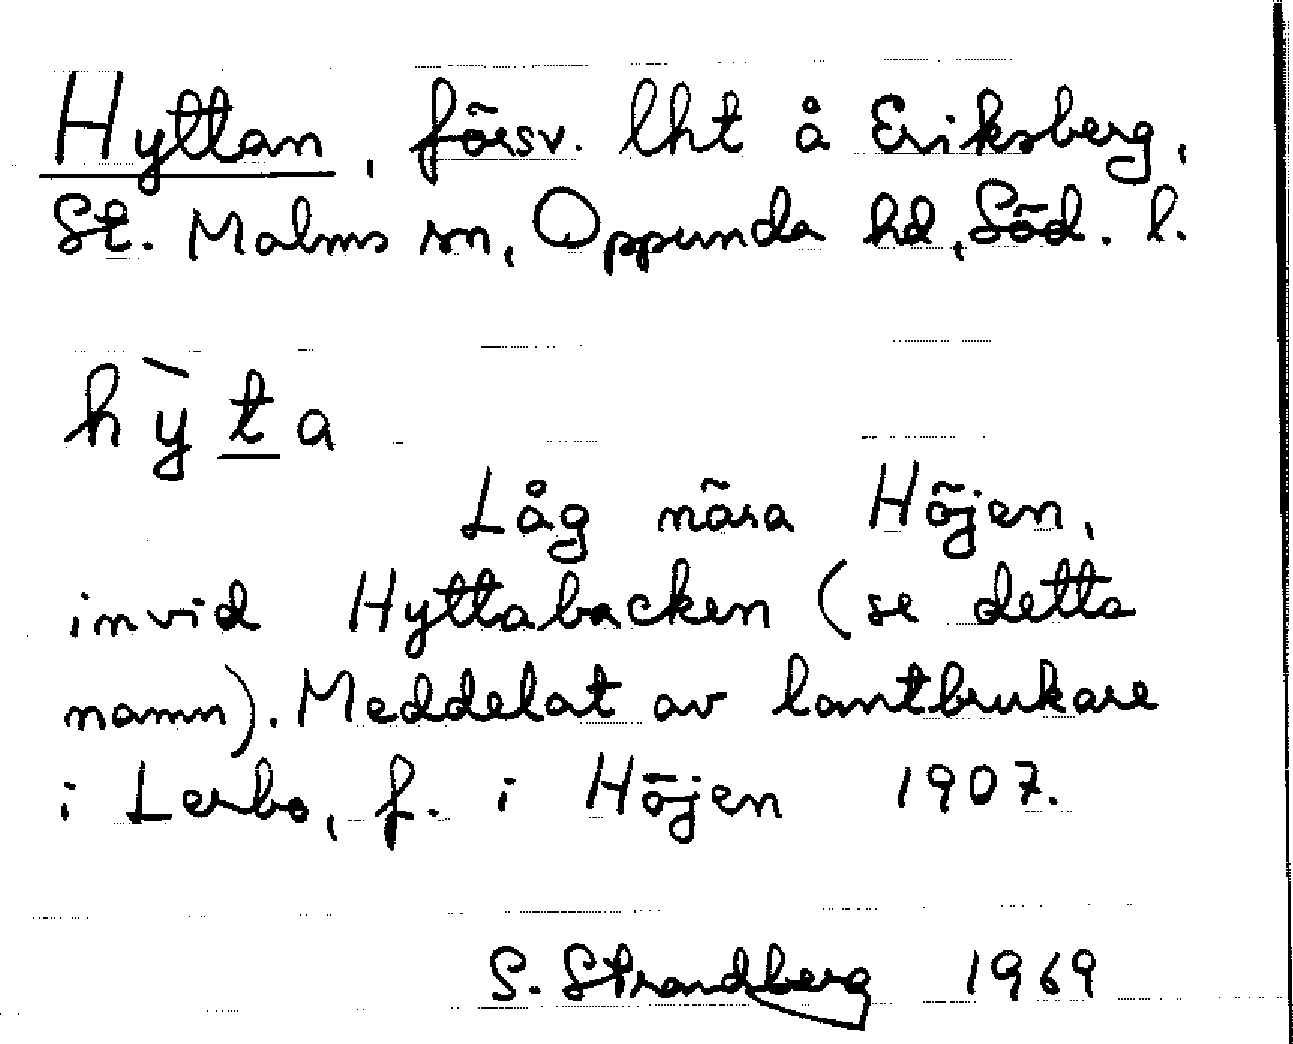 Hyttan, försv. lht å Eriksberg,
St. Malms sn, Oppunda hd, Söd. l.
hỳt̲a
Låg nära Höjen,
invid Hyttabacken (se detta
namn). Meddelat av lantbrukare
i Lerbo, f. i Höjen 1907.
S. Strandberg 1969